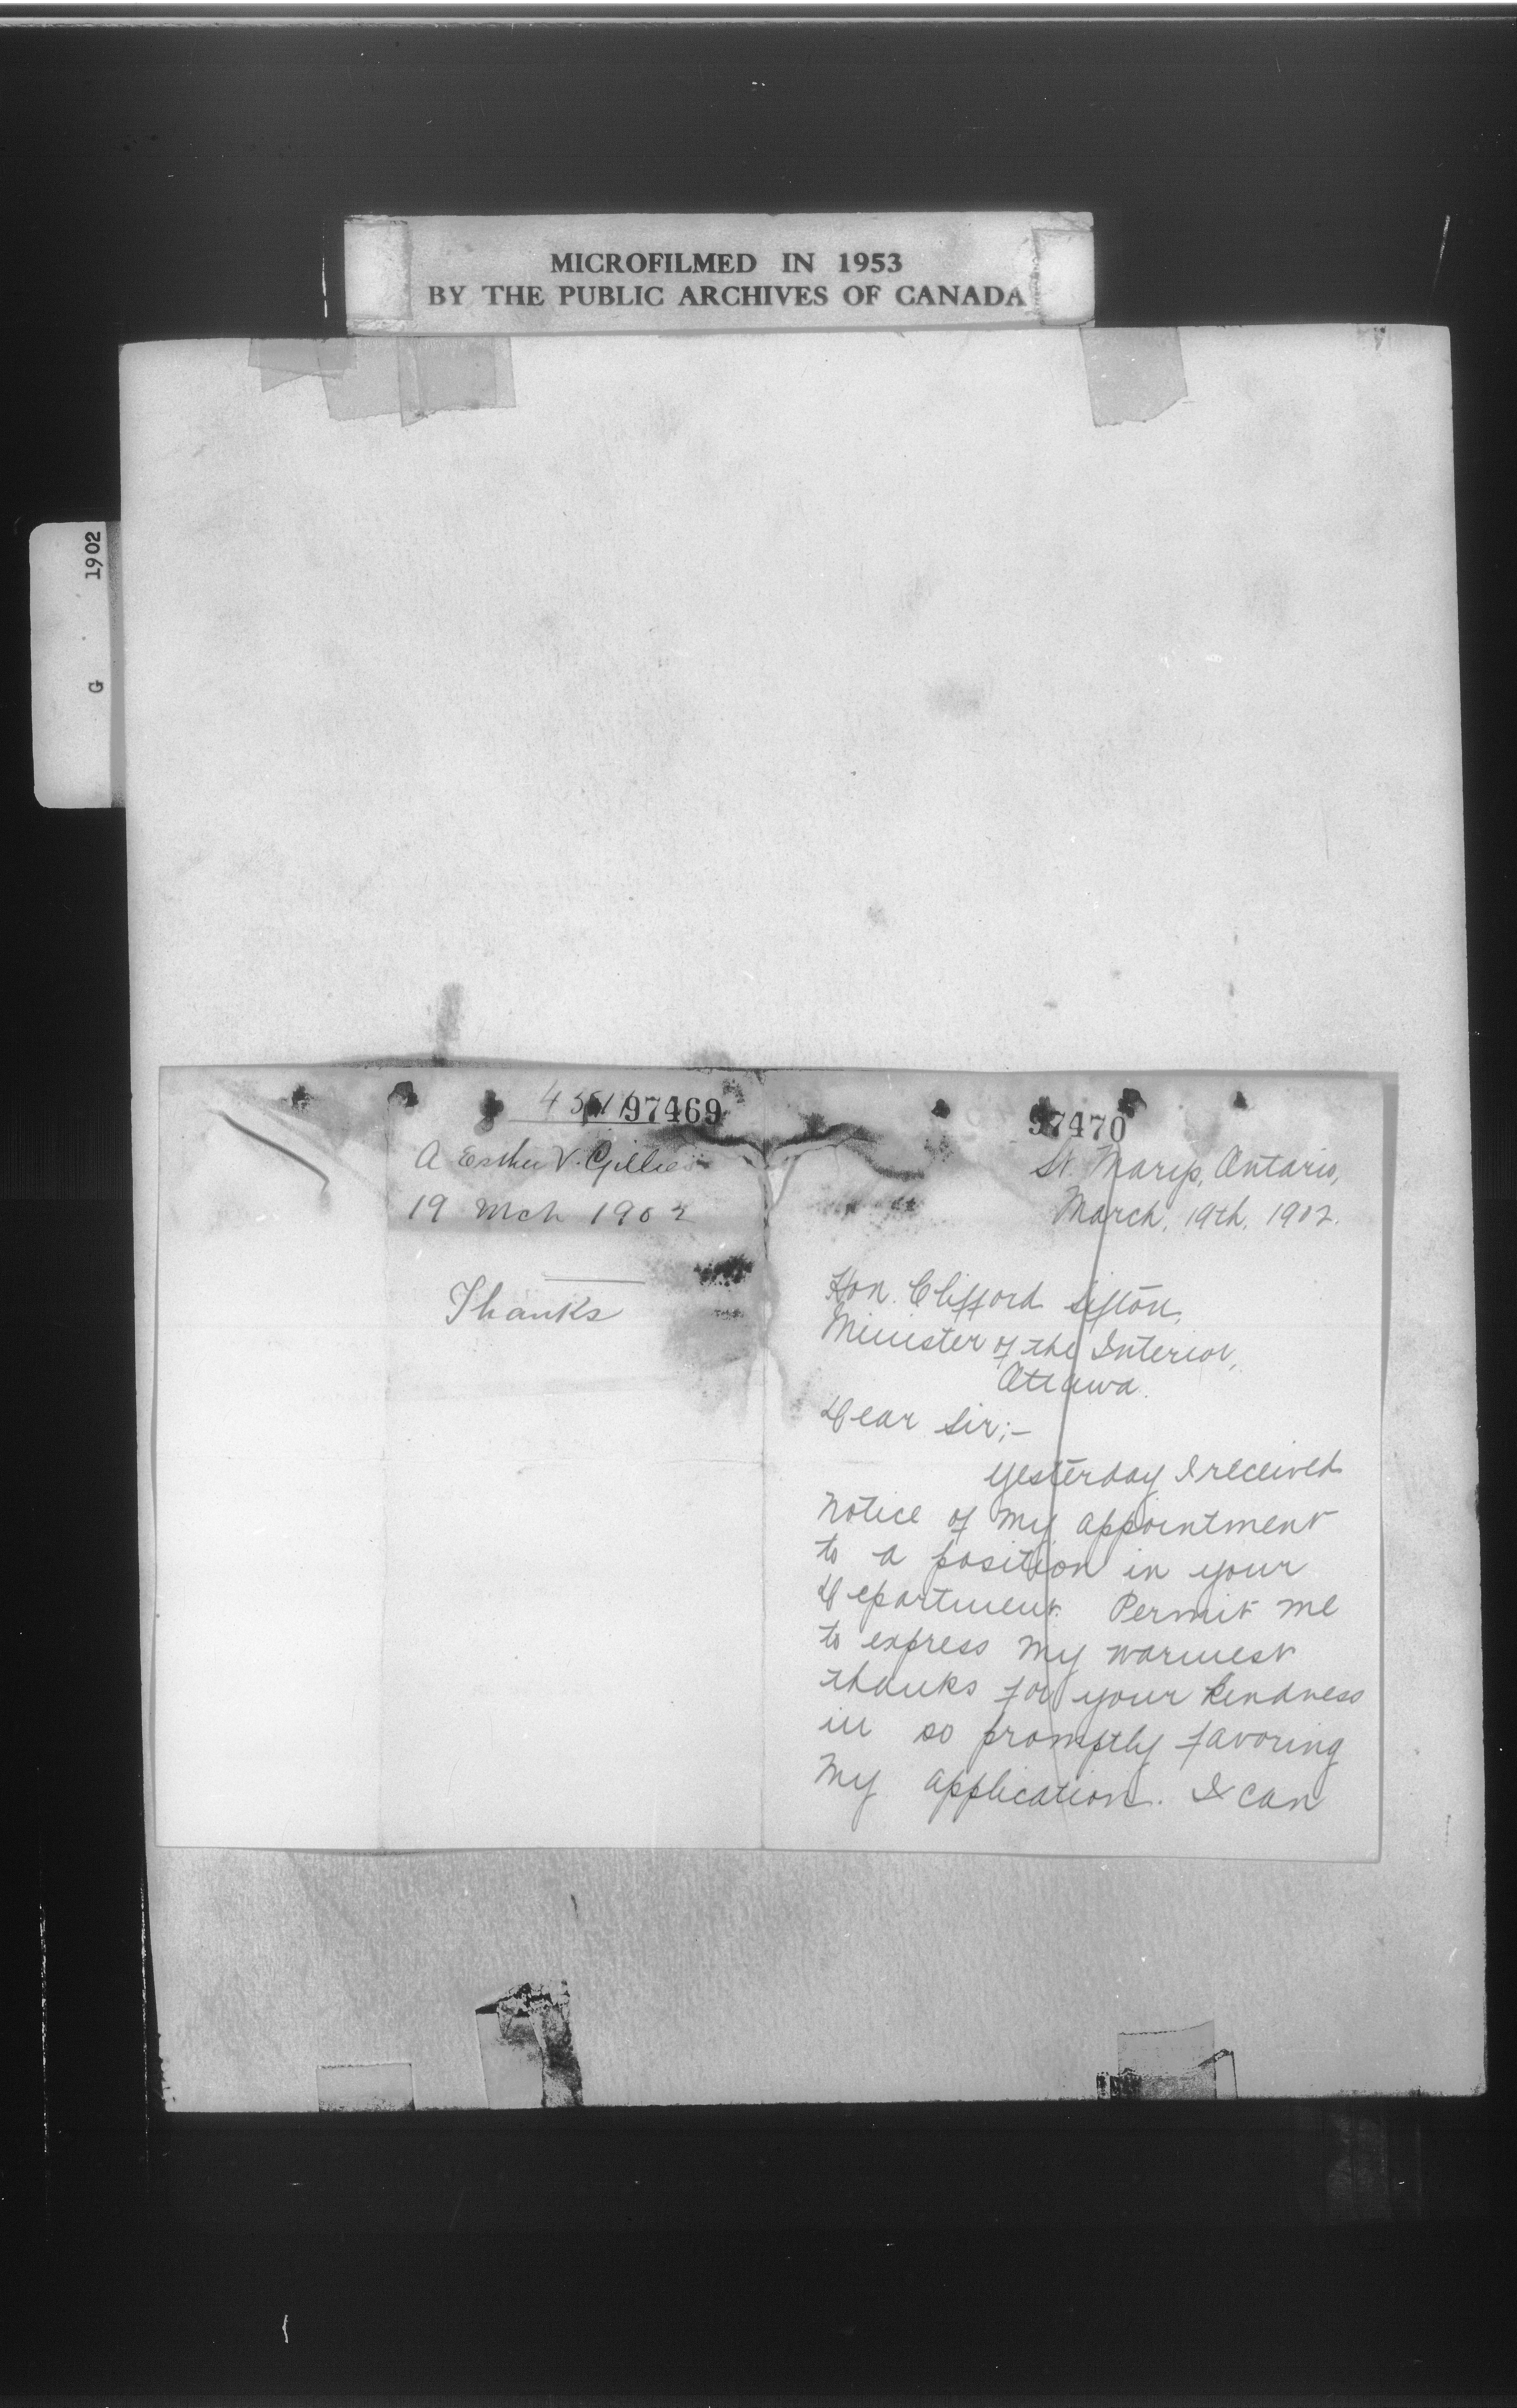 MICROFILMED IN 1953
BY THE PUBLIC ARCHIVES OF CANADA
G 1902
97469
A Esther V. Gillies
19 Mch 1902
Thanks
97470
St. Marys, Ontario,
March, 19th, 1902.
Hon. Clifford Sifton,
Minister of the Interior,
Ottawa.
Dear Sir;-
Yesterday I received
notice of my appointment
to a position in your
Department. Permit me
to express my warmest
thanks for your kindness
in so promptly favoring
my application. I can